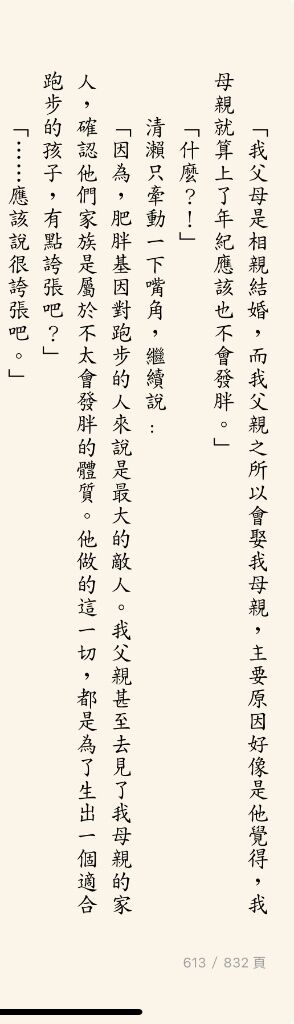 「我父母是相親結婚，而我父親之所以會娶我母親，主要原因好像是他覺得，我
母親就算上了年紀應該也不會發胖。」
「什麼？！」
清瀨只牽動一下嘴角，繼續說：
「因為，肥胖基因對跑步的人來說是最大的敵人。我父親甚至去見了我母親的家
人，確認他們家族是屬於不太會發胖的體質。他做的這一切，都是為了生出一個適合
跑步的孩子，有點誇張吧？」
「……應該說很誇張吧。」
613 / 832 頁